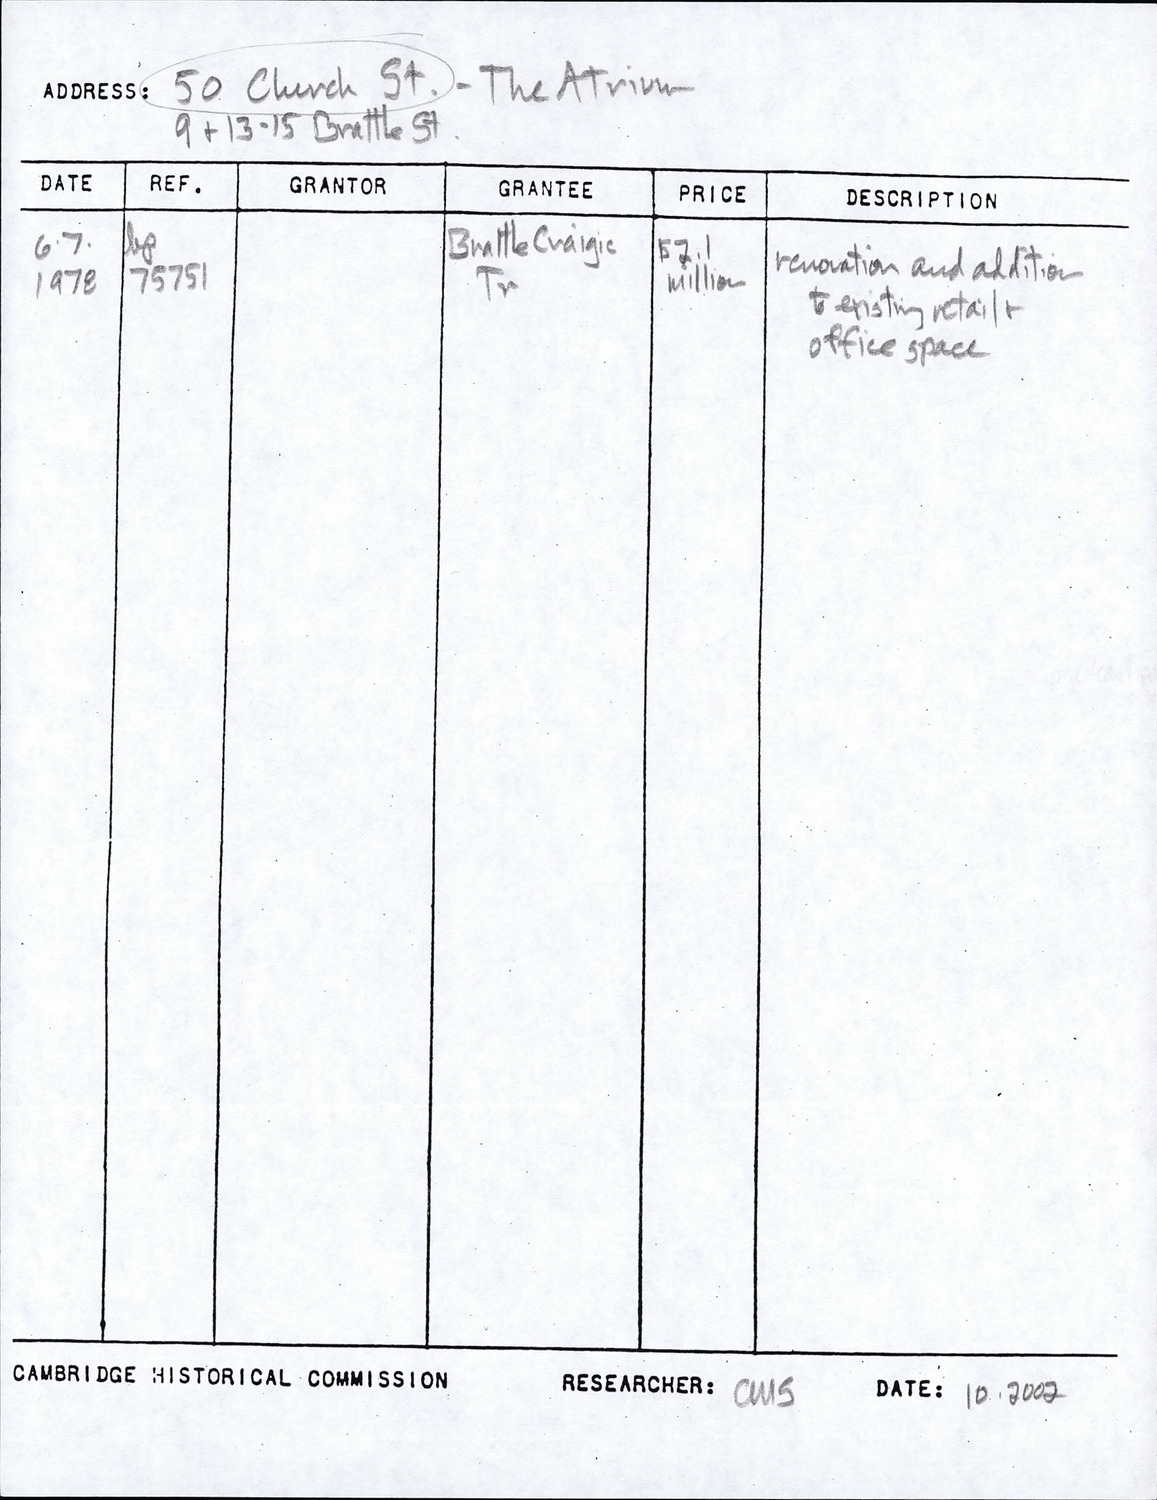 ADDRESS: 50 Church St. - The Atrium
9 + 13-15 Brattle St.
DATE REF. GRANTOR GRANTEE PRICE DESCRIPTION
6.7. bp Brattle Craigie $2.1 renovation and addition
1978 75751 Tr million to existing retail +
office space
CAMBRIDGE HISTORICAL COMMISSION RESEARCHER: CMS DATE: 10.2002